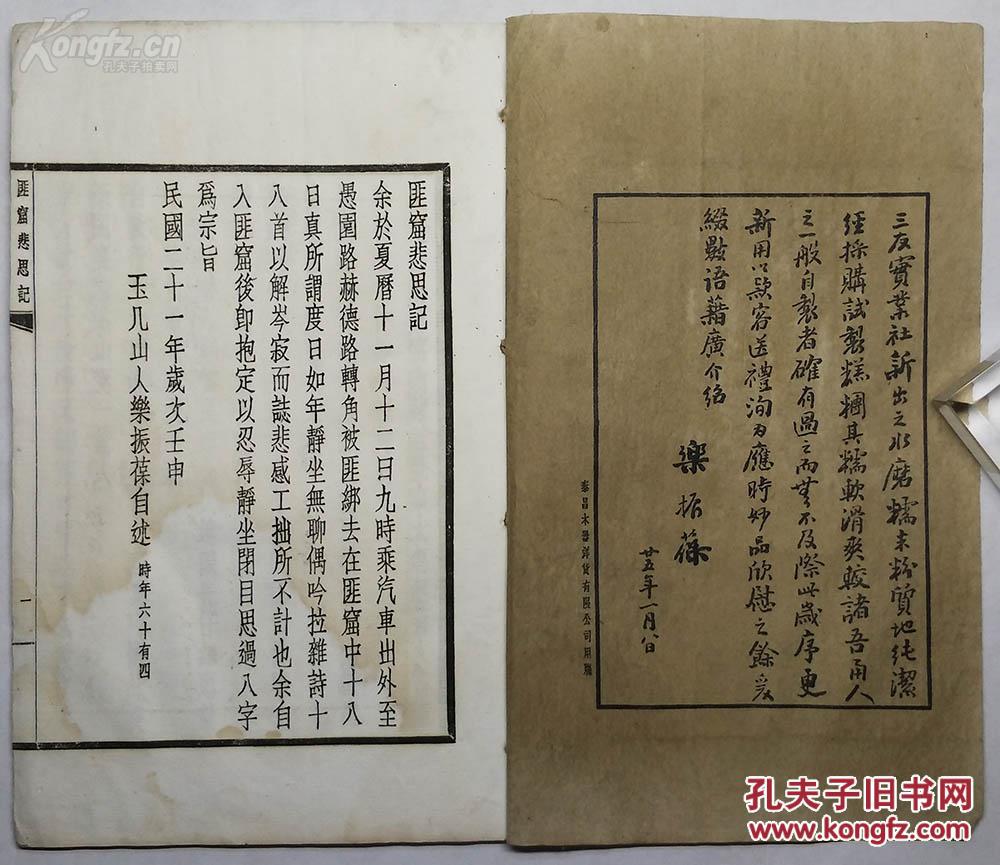 三友實業社新出之水磨糯米粉質地純潔
經採購試製糕糰其糯軟滑爽較諸吾甬人
之一般自製者確有過之而無不及際此歲序更
新用以款客送禮洵為應時妙品欣慰之餘爰
綴數語藉廣介紹
樂振葆
廿五年一月八日
泰昌木器洋貨有限公司用牋
匪窟悲思記
余於夏曆十一月十二日九時乘汽車出外至
愚園路赫德路轉角被匪綁去在匪窟中十八
日真所謂度日如年靜坐無聊偶吟拉雜詩十
八首以解岑寂而誌悲感工拙所不計也余自
入匪窟後即抱定以忍辱靜坐閉目思過八字
爲宗旨
民國二十一年歲次壬申
玉几山人樂振葆自述 時年六十有四
匪窟悲思記
一
Kongfz.cn
孔夫子拍卖网
孔夫子旧书网
www.kongfz.com